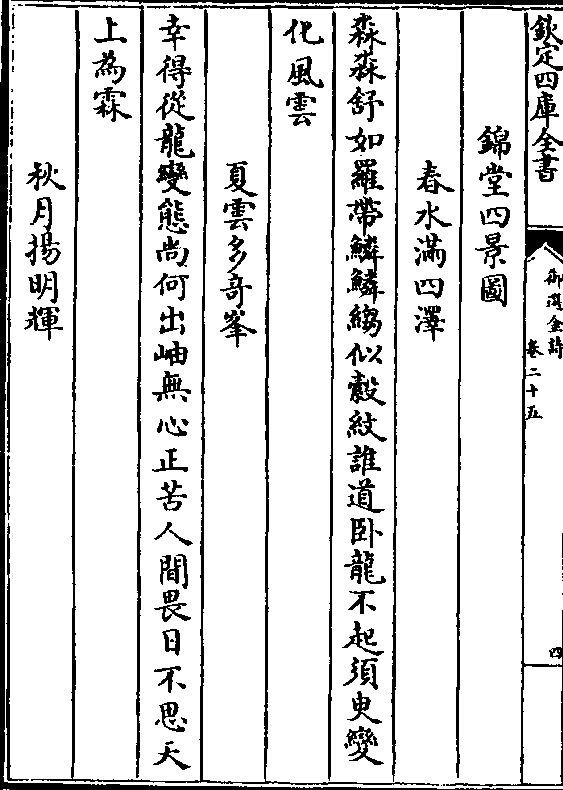 欽定四庫全書
御選金詩
卷二十五
四
錦堂四景圖
春水滿四澤
淼淼舒如羅帶鱗鱗縐似縠紋誰道卧龍不起須臾變
化風雲
夏雲多竒峯
幸得從龍變態尚何出岫無心正苦人間畏日不思天
上為霖
秋月揚明輝